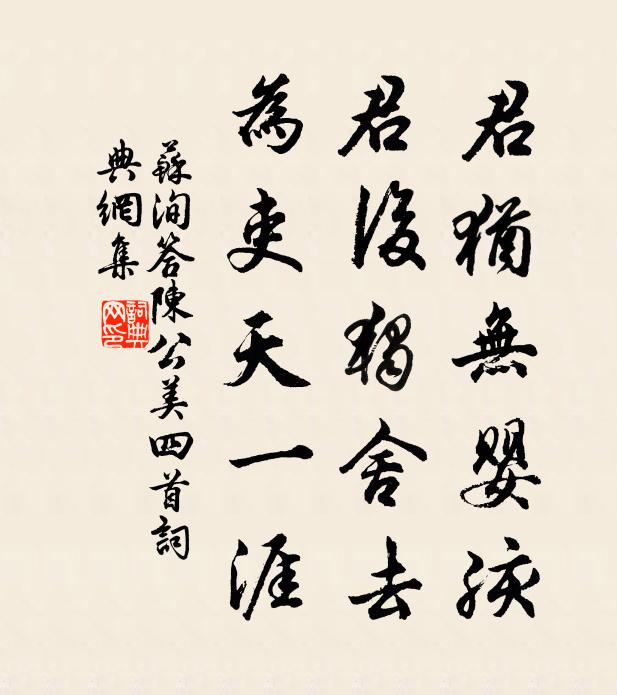 君猶無嬰孩
君後獨舍去
為吏天一涯
蘇洵答陳公美四首詞
典網集
詞典
网印